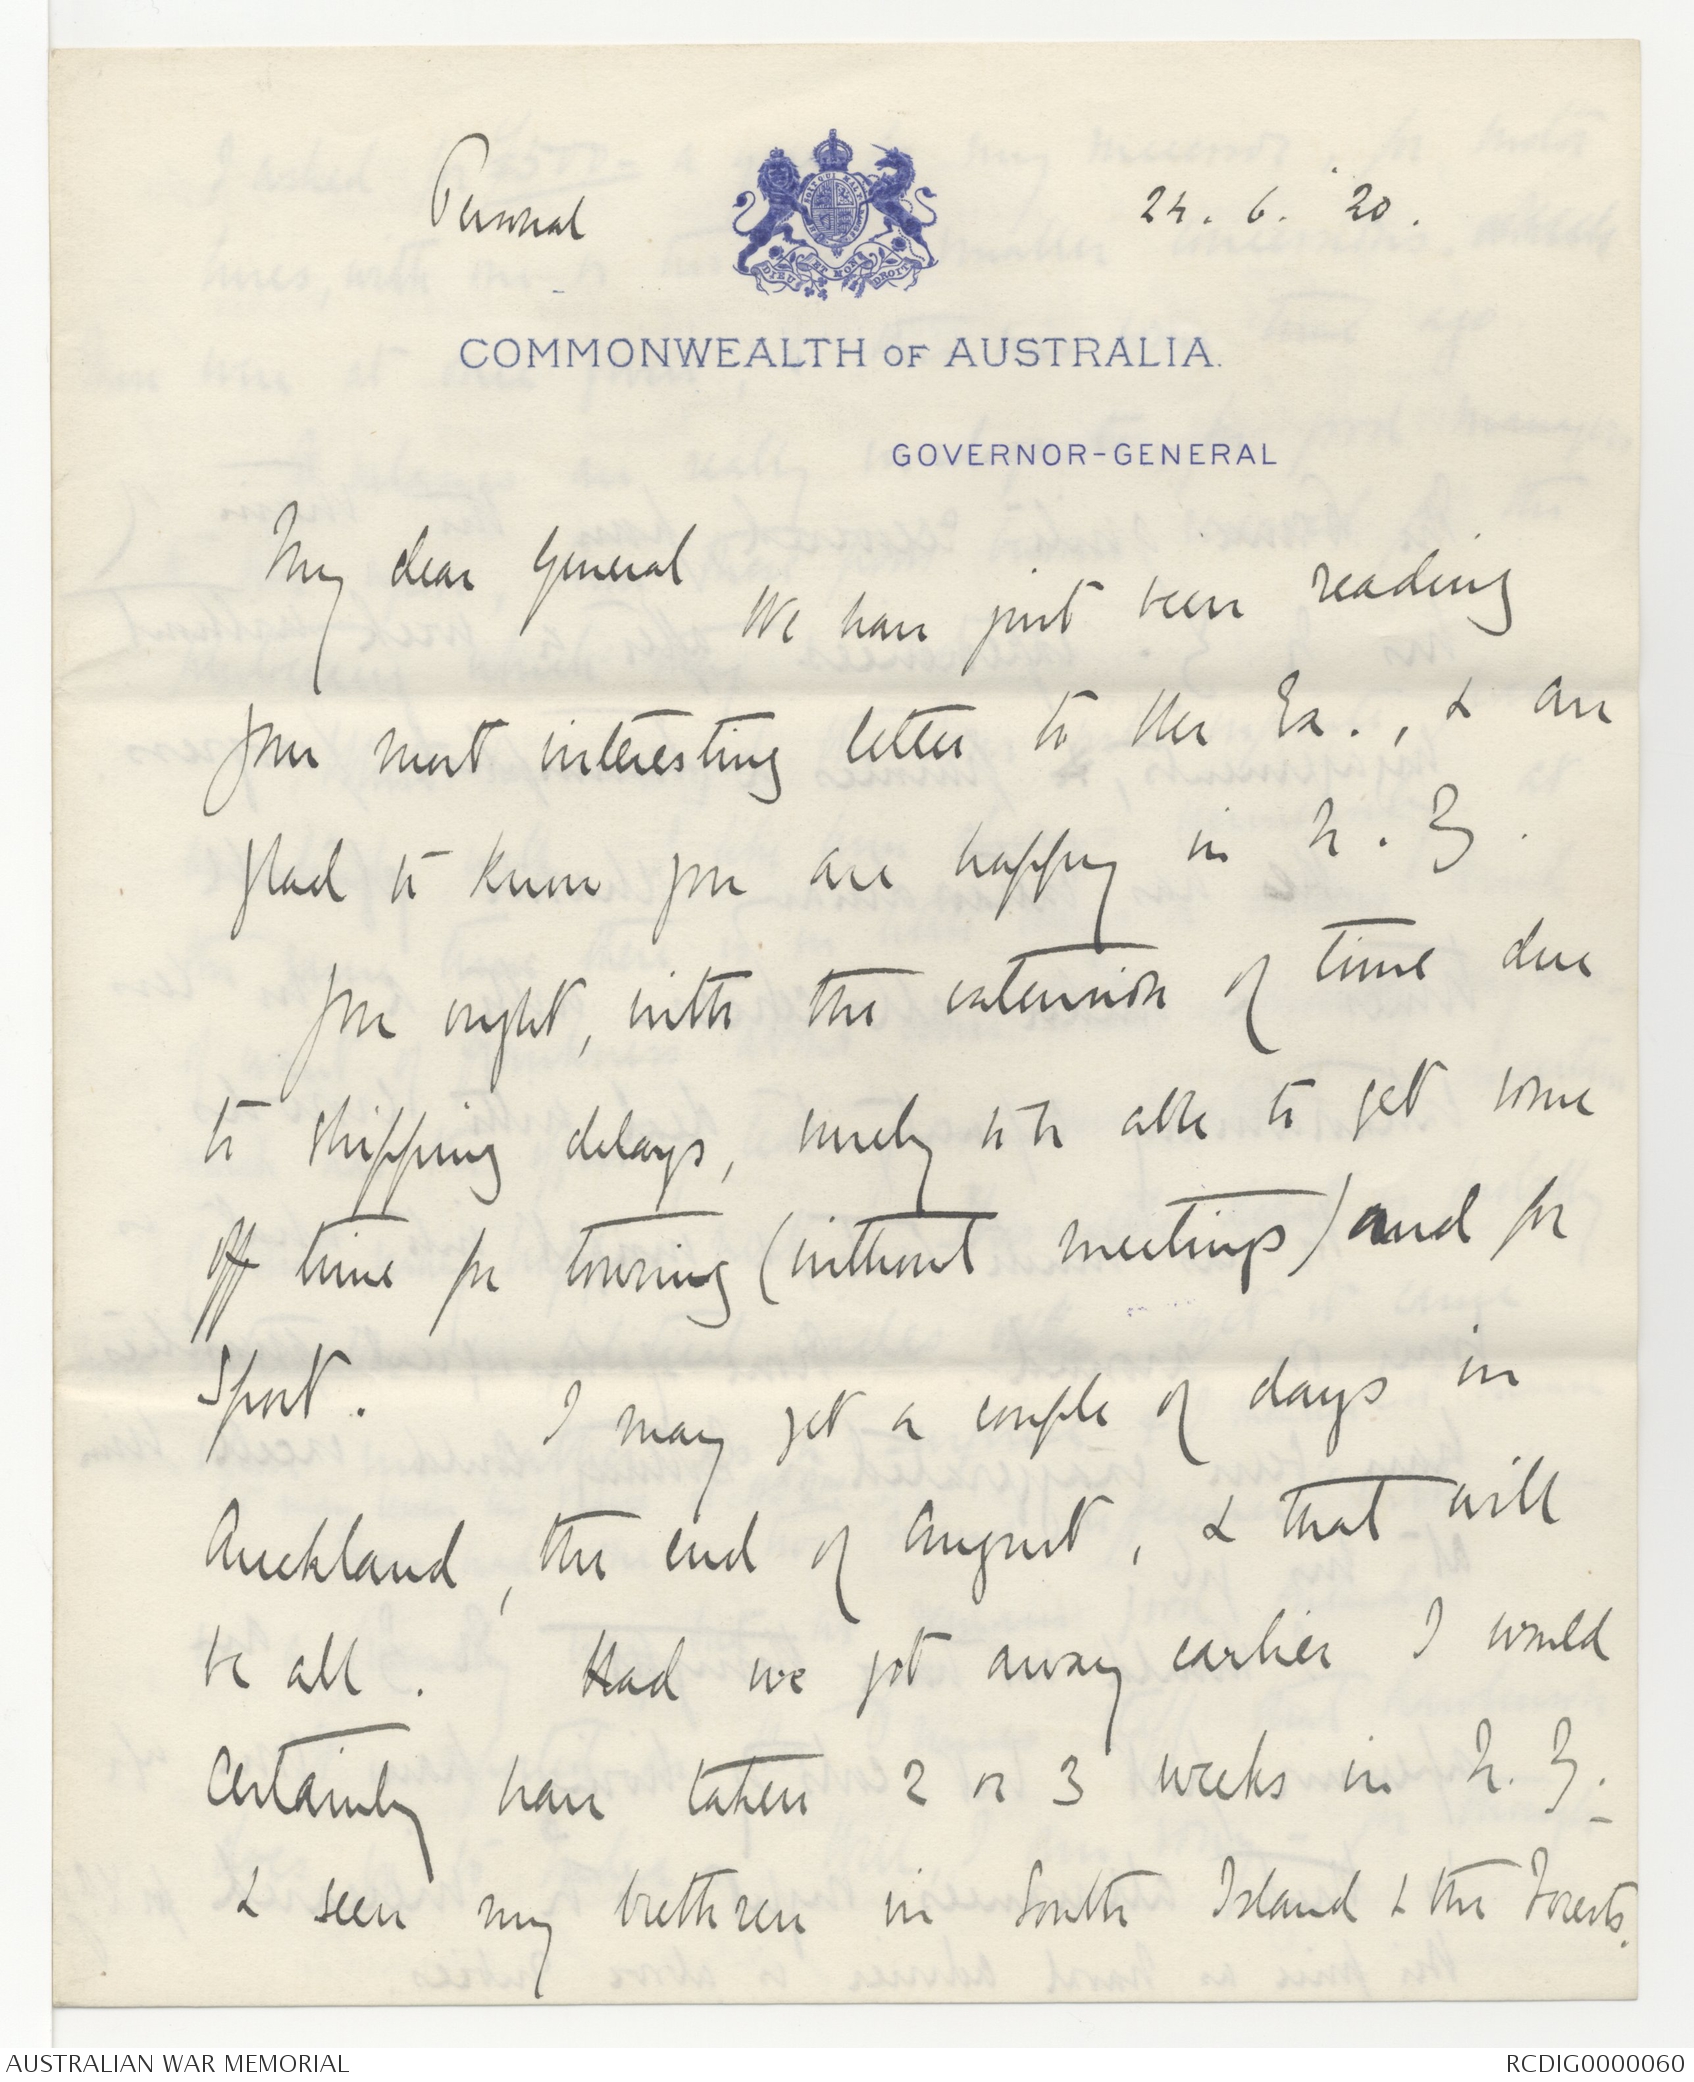 Personal
24. 6. '20.
HONI SOIT QUI MAL Y PENSE
DIEU ET MON DROIT
COMMONWEALTH OF AUSTRALIA.
GOVERNOR-GENERAL
My dear General
We have just been reading
your most interesting letter to Her Ex., & are
glad to know you are happy in N. Z.
You ought, with the extension of time due
to shipping delays, surely to be able to get some
off time for touring (without meetings) and for
Sport. I may get a couple of days in
Auckland, the end of August, & that will
be all. Had we got away earlier I would
certainly have taken 2 or 3 weeks in N. Z.
& seen my brethren in South Island & the Forests.
AUSTRALIAN WAR MEMORIAL
RCDIG0000060